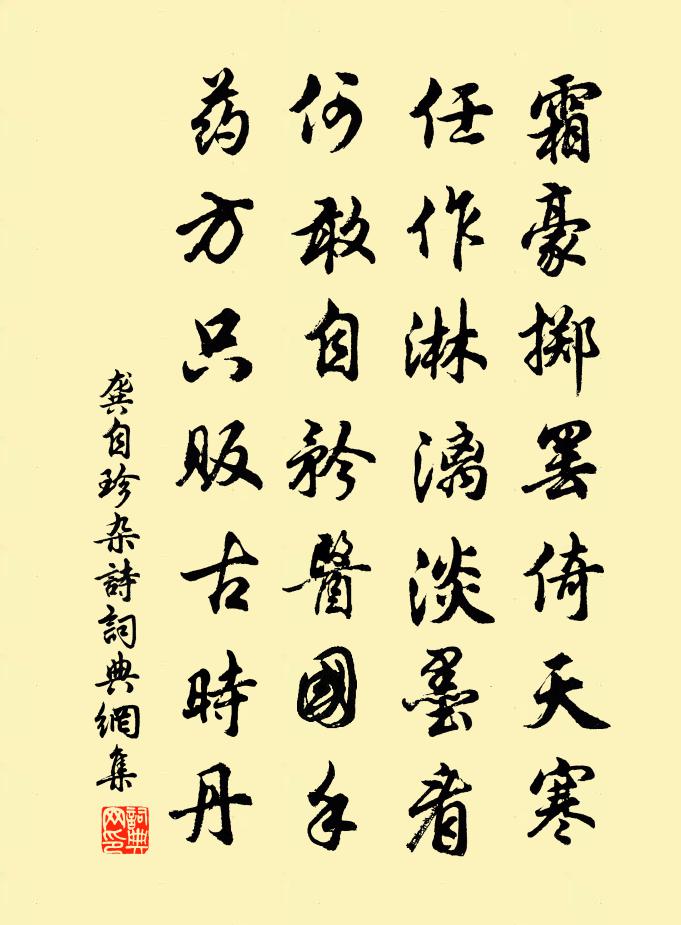 霜豪掷罢倚天寒
任作淋漓淡墨看
何敢自矜醫國手
药方只贩古時丹
龚自珍杂詩詞典網集
詞典网印